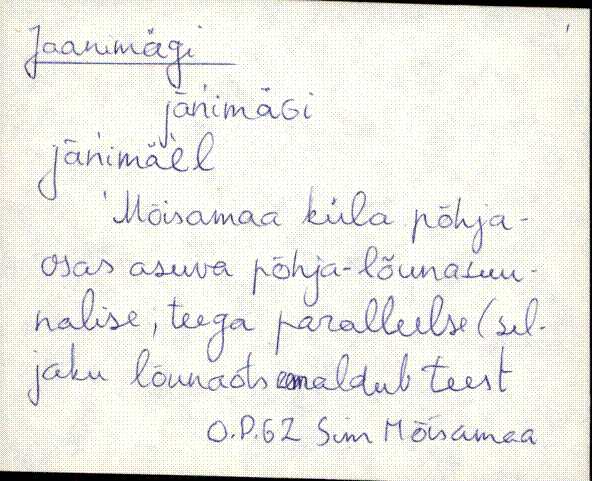 Jaanimägi
jāńimäGi
jāńimäel
Mõisamaa küla põhja-
osas asuva põhja-lõunasuu-
nalise, teega paralleelse (sel-
jaku lõunaots eemaldub teest
O.P.62 Sim Mõisamaa